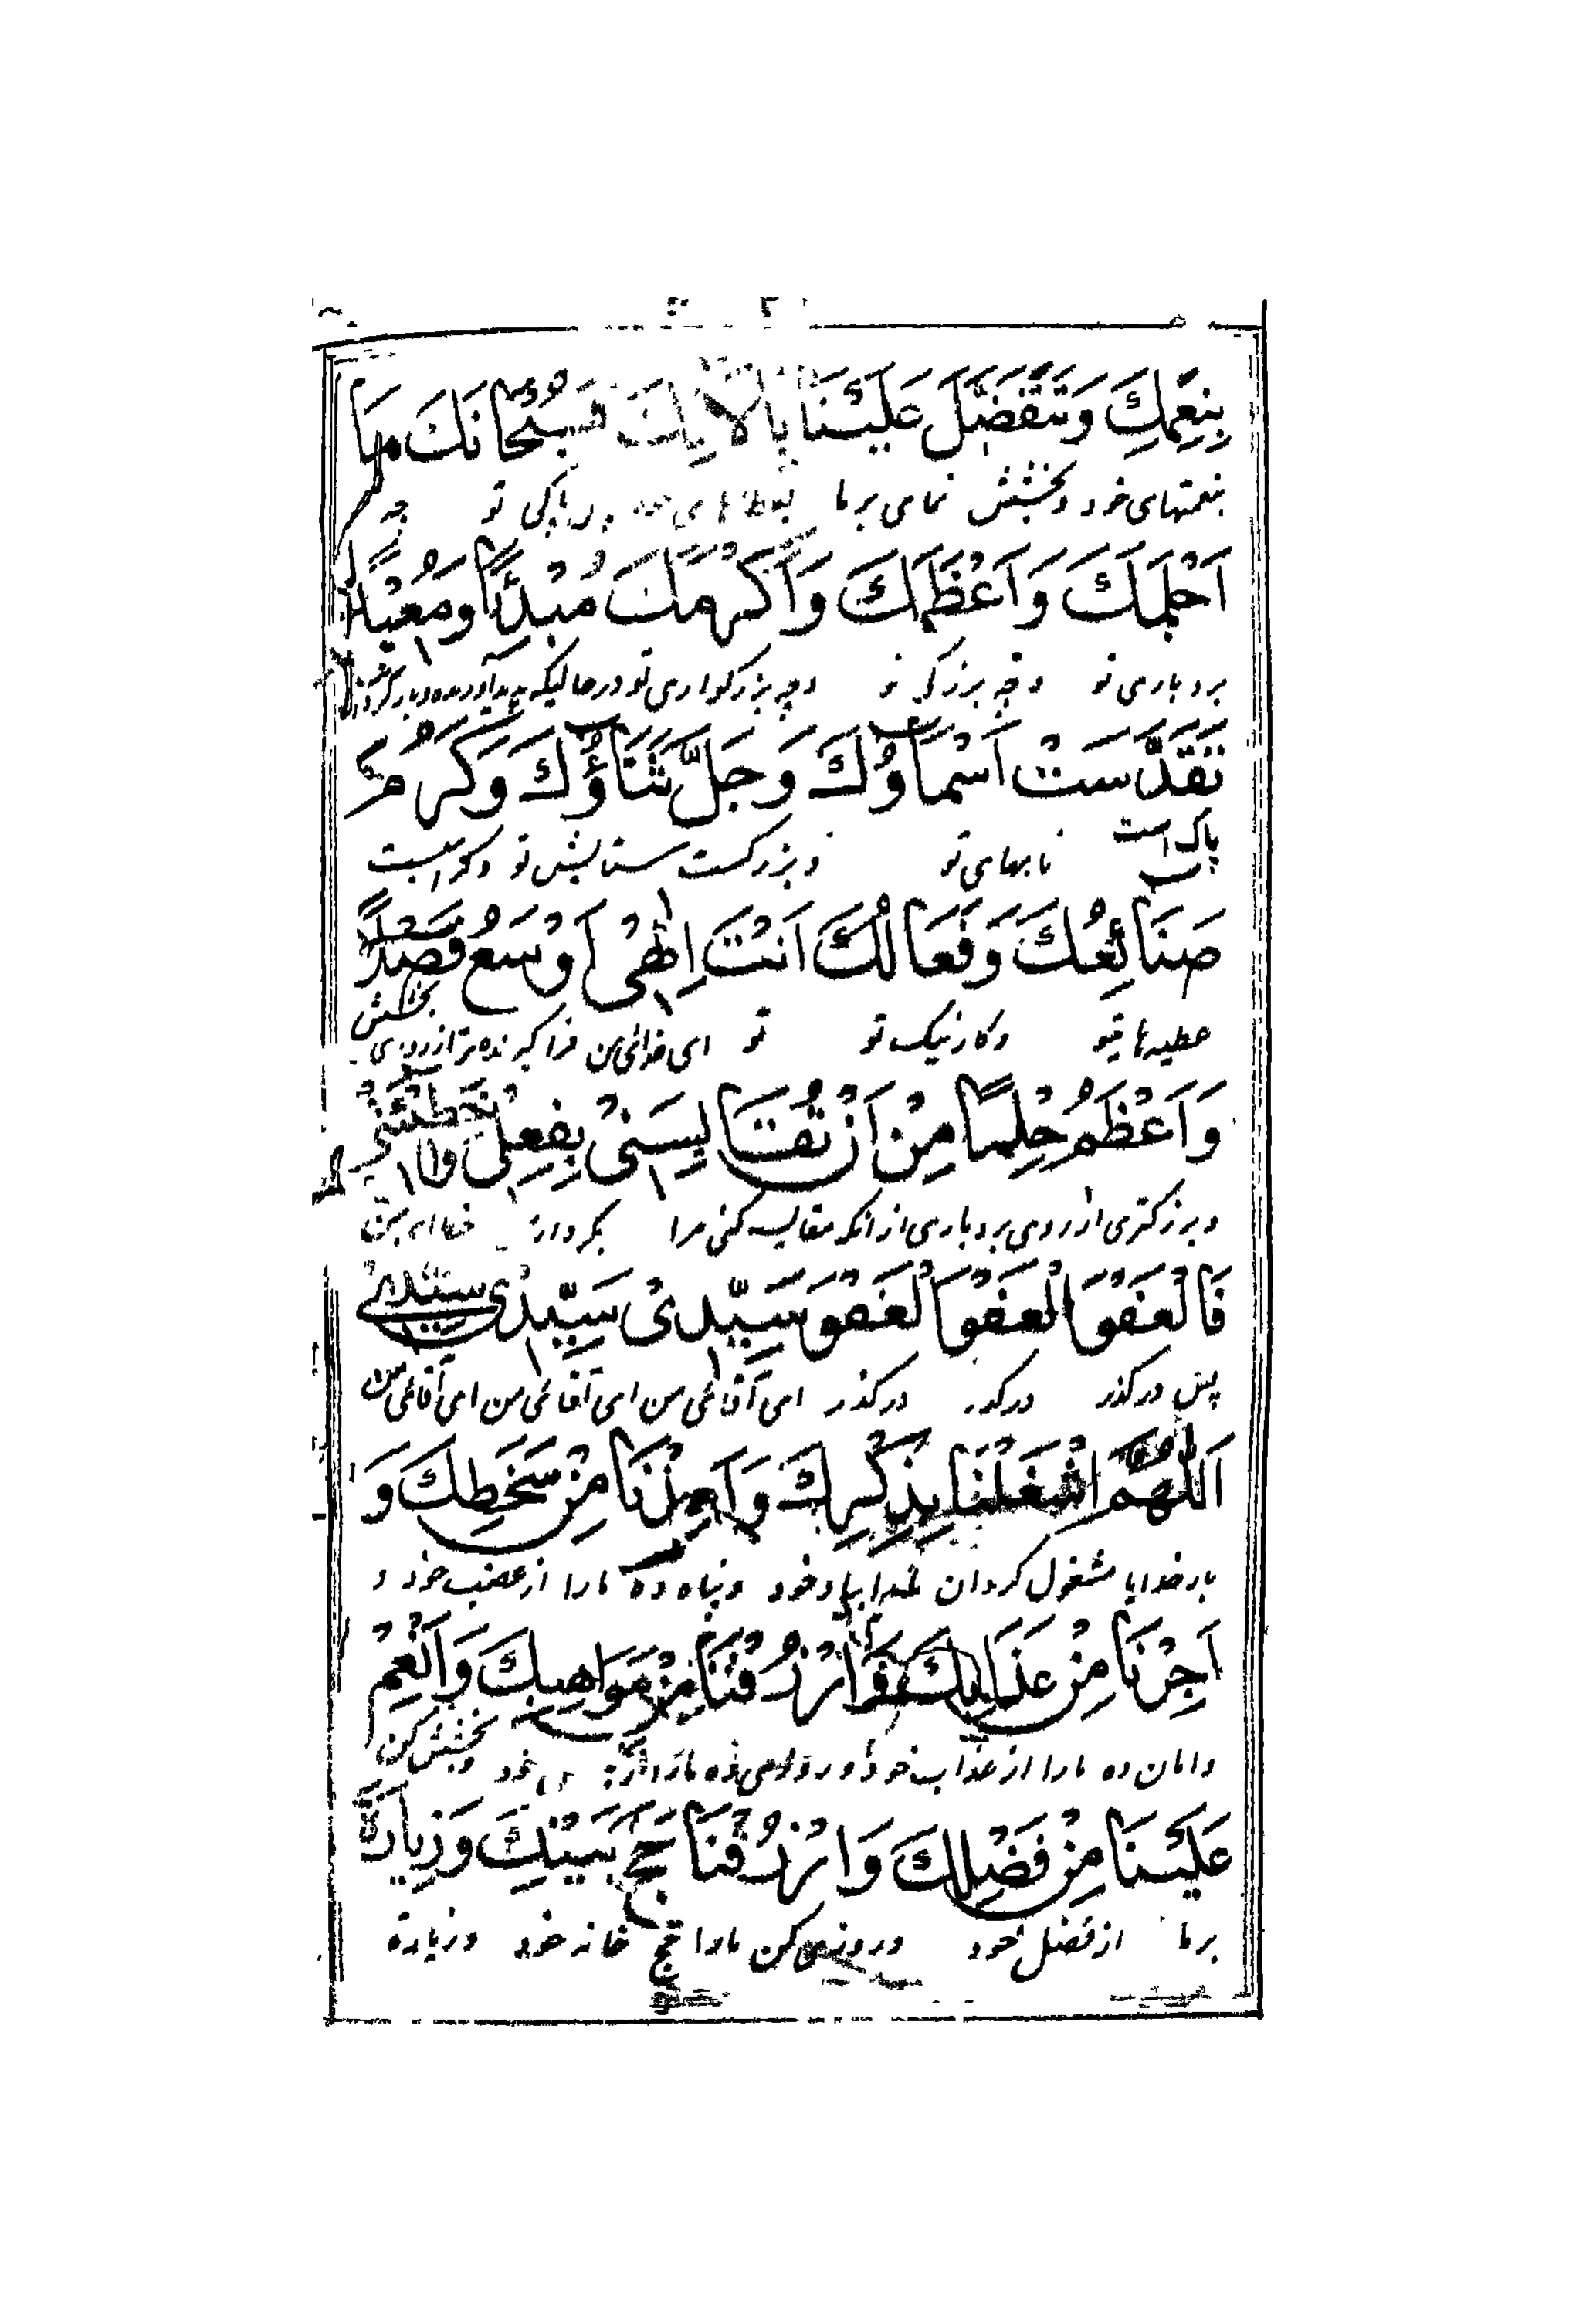 بِنِعَمِكَ وَتَتَفَضَّلَ عَلَيْنَا بِآلَائِكَ فَسُبْحَانَكَ مَا
بنعمتهای خود و بخشش نمای بر ما پاکی تو چه
اَحْلَمَكَ وَاَعْظَمَكَ وَاَكْرَمَكَ مُبْدِئًا وَمُعِيْدًا
بردباری تو و چه بزرگی تو و چه بزرگواری تو در حالیکه
تَقَدَّسَتْ اَسْمَاؤُكَ وَجَلَّ ثَنَاؤُكَ وَكَرُمَ
پاک است نامهای تو و بزرکست ستایش تو و
صَنَائِعُكَ وَفَعَالُكَ اَنْتَ اِلٰهِىْ اَوْسَعُ فَضْلًا
عطیه‌های تو و کار نیک تو تو ای خدای من بخشش
وَاَعْظَمُ حِلْمًا مِنْ اَنْ تُقَايِسَنِىْ بِفِعْلِىْ وَخَطِيْئَتِىْ
و بزرکتری از روی بردباری از انکه مقایسه کنی مرا
فَالْعَفْوَ الْعَفْوَ الْعَفْوَ سَيِّدِىْ سَيِّدِىْ سَيِّدِىْ
پس درکذر درکذر درکذر ای آقای من ای آقای من ای آقای من
اَللّٰهُمَّ اشْغَلْنَا بِذِكْرِكَ وَاَعِذْنَا مِنْ سَخَطِكَ وَ
بار خدایا مشغول کردان بیاد خود و پناه ده مارا از غضب خود و
اَجِرْنَا مِنْ عَذَابِكَ وَارْزُقْنَا مِنْ مَوَاهِبِكَ وَاَنْعِمْ
و امان ده مارا از عذاب خود و بخشش کن
عَلَيْنَا مِنْ فَضْلِكَ وَارْزُقْنَا حَجَّ بَيْتِكَ وَزِيَارَةَ
بر ما از فضل خود و روزی کن مارا حج خانه خود و زیارة